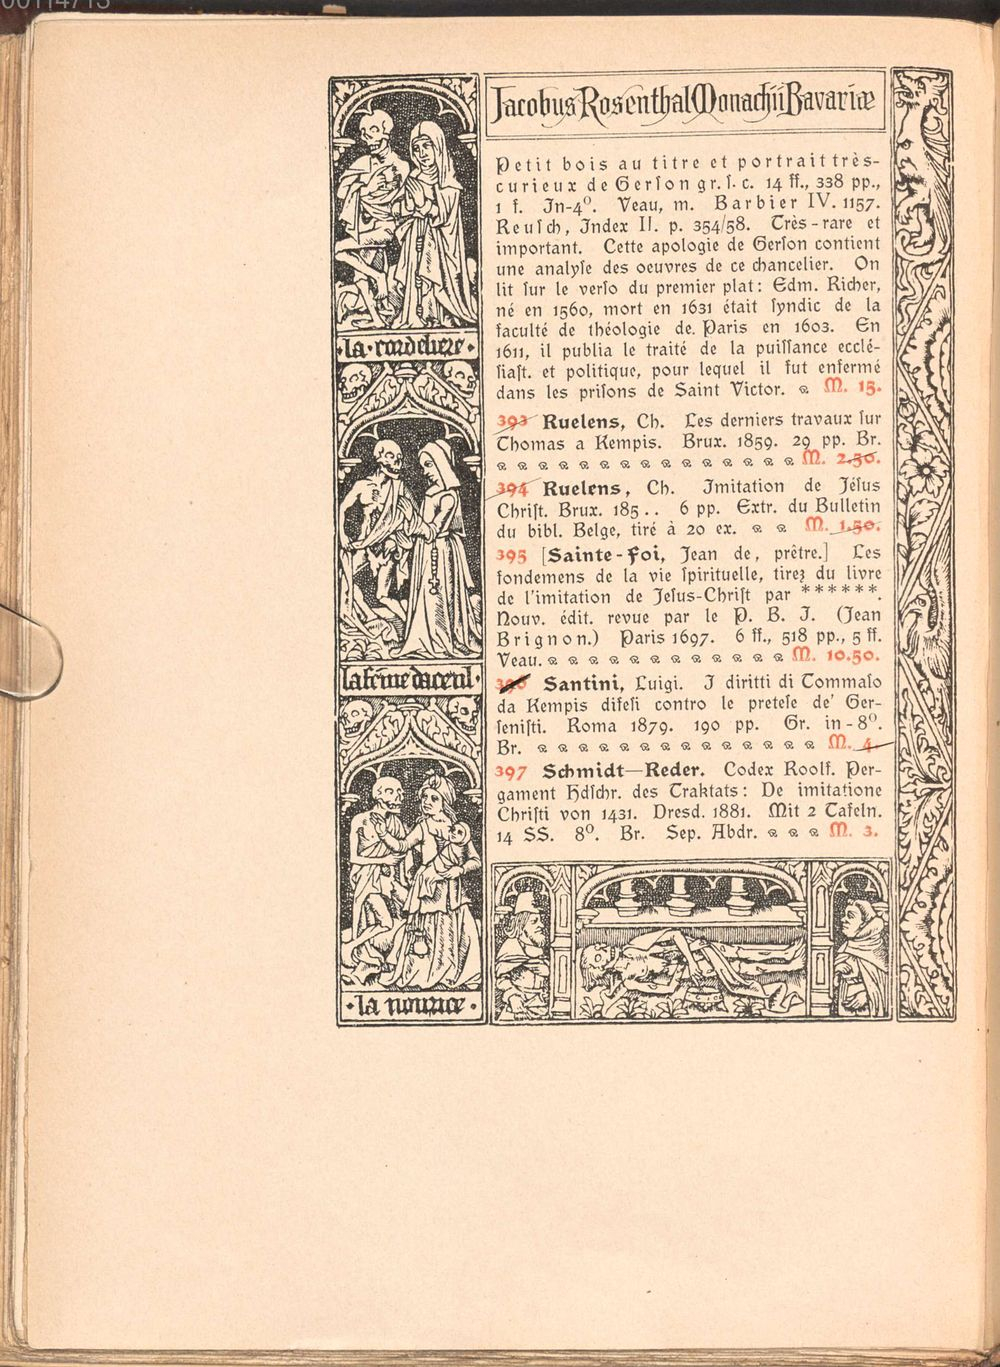 00114713
Jacobus Rosenthal Monachii Bavariæ
Petit bois au titre et portrait très-
curieux de Gerſon gr. ſ. c. 14 ff., 338 pp.,
1 f. In-4⁰. Veau, m. Barbier IV. 1157.
Reuſch, Index II. p. 354/58. Très-rare et
important. Cette apologie de Gerſon contient
une analyſe des oeuvres de ce chancelier. On
lit ſur le verſo du premier plat: Edm. Richer,
né en 1560, mort en 1631 était ſyndic de la
faculté de théologie de. Paris en 1603. En
1611, il publia le traité de la puiſſance ecclé-
ſiaſt. et politique, pour lequel il fut enfermé
dans les priſons de Saint Victor. M. 15.
393 Ruelens, Ch. Les derniers travaux ſur
Thomas a Kempis. Brux. 1859. 29 pp. Br.
M. 2.50.
394 Ruelens, Ch. Imitation de Jéſus
Chriſt. Brux. 185.. 6 pp. Extr. du Bulletin
du bibl. Belge, tiré à 20 ex. M. 1.50.
395 [Sainte-Foi, Jean de, prêtre.] Les
fondemens de la vie ſpirituelle, tirez du livre
de l'imitation de Jeſus-Chriſt par ******.
Nouv. édit. revue par le P. B. J. (Jean
Brignon.) Paris 1697. 6 ff., 518 pp., 5 ff.
Veau. M. 10.50.
396 Santini, Luigi. I diritti di Tommaſo
da Kempis difeſi contro le preteſe de' Ger-
ſeniſti. Roma 1879. 190 pp. Gr. in-8⁰.
Br. M. 4
397 Schmidt—Reder. Codex Roolf. Per-
gament Hdſchr. des Traktats: De imitatione
Chriſti von 1431. Dresd. 1881. Mit 2 Tafeln.
14 SS. 8⁰. Br. Sep. Abdr. M. 3.
·la·cordeliere·
la fẽme daceul·
·la nourice·